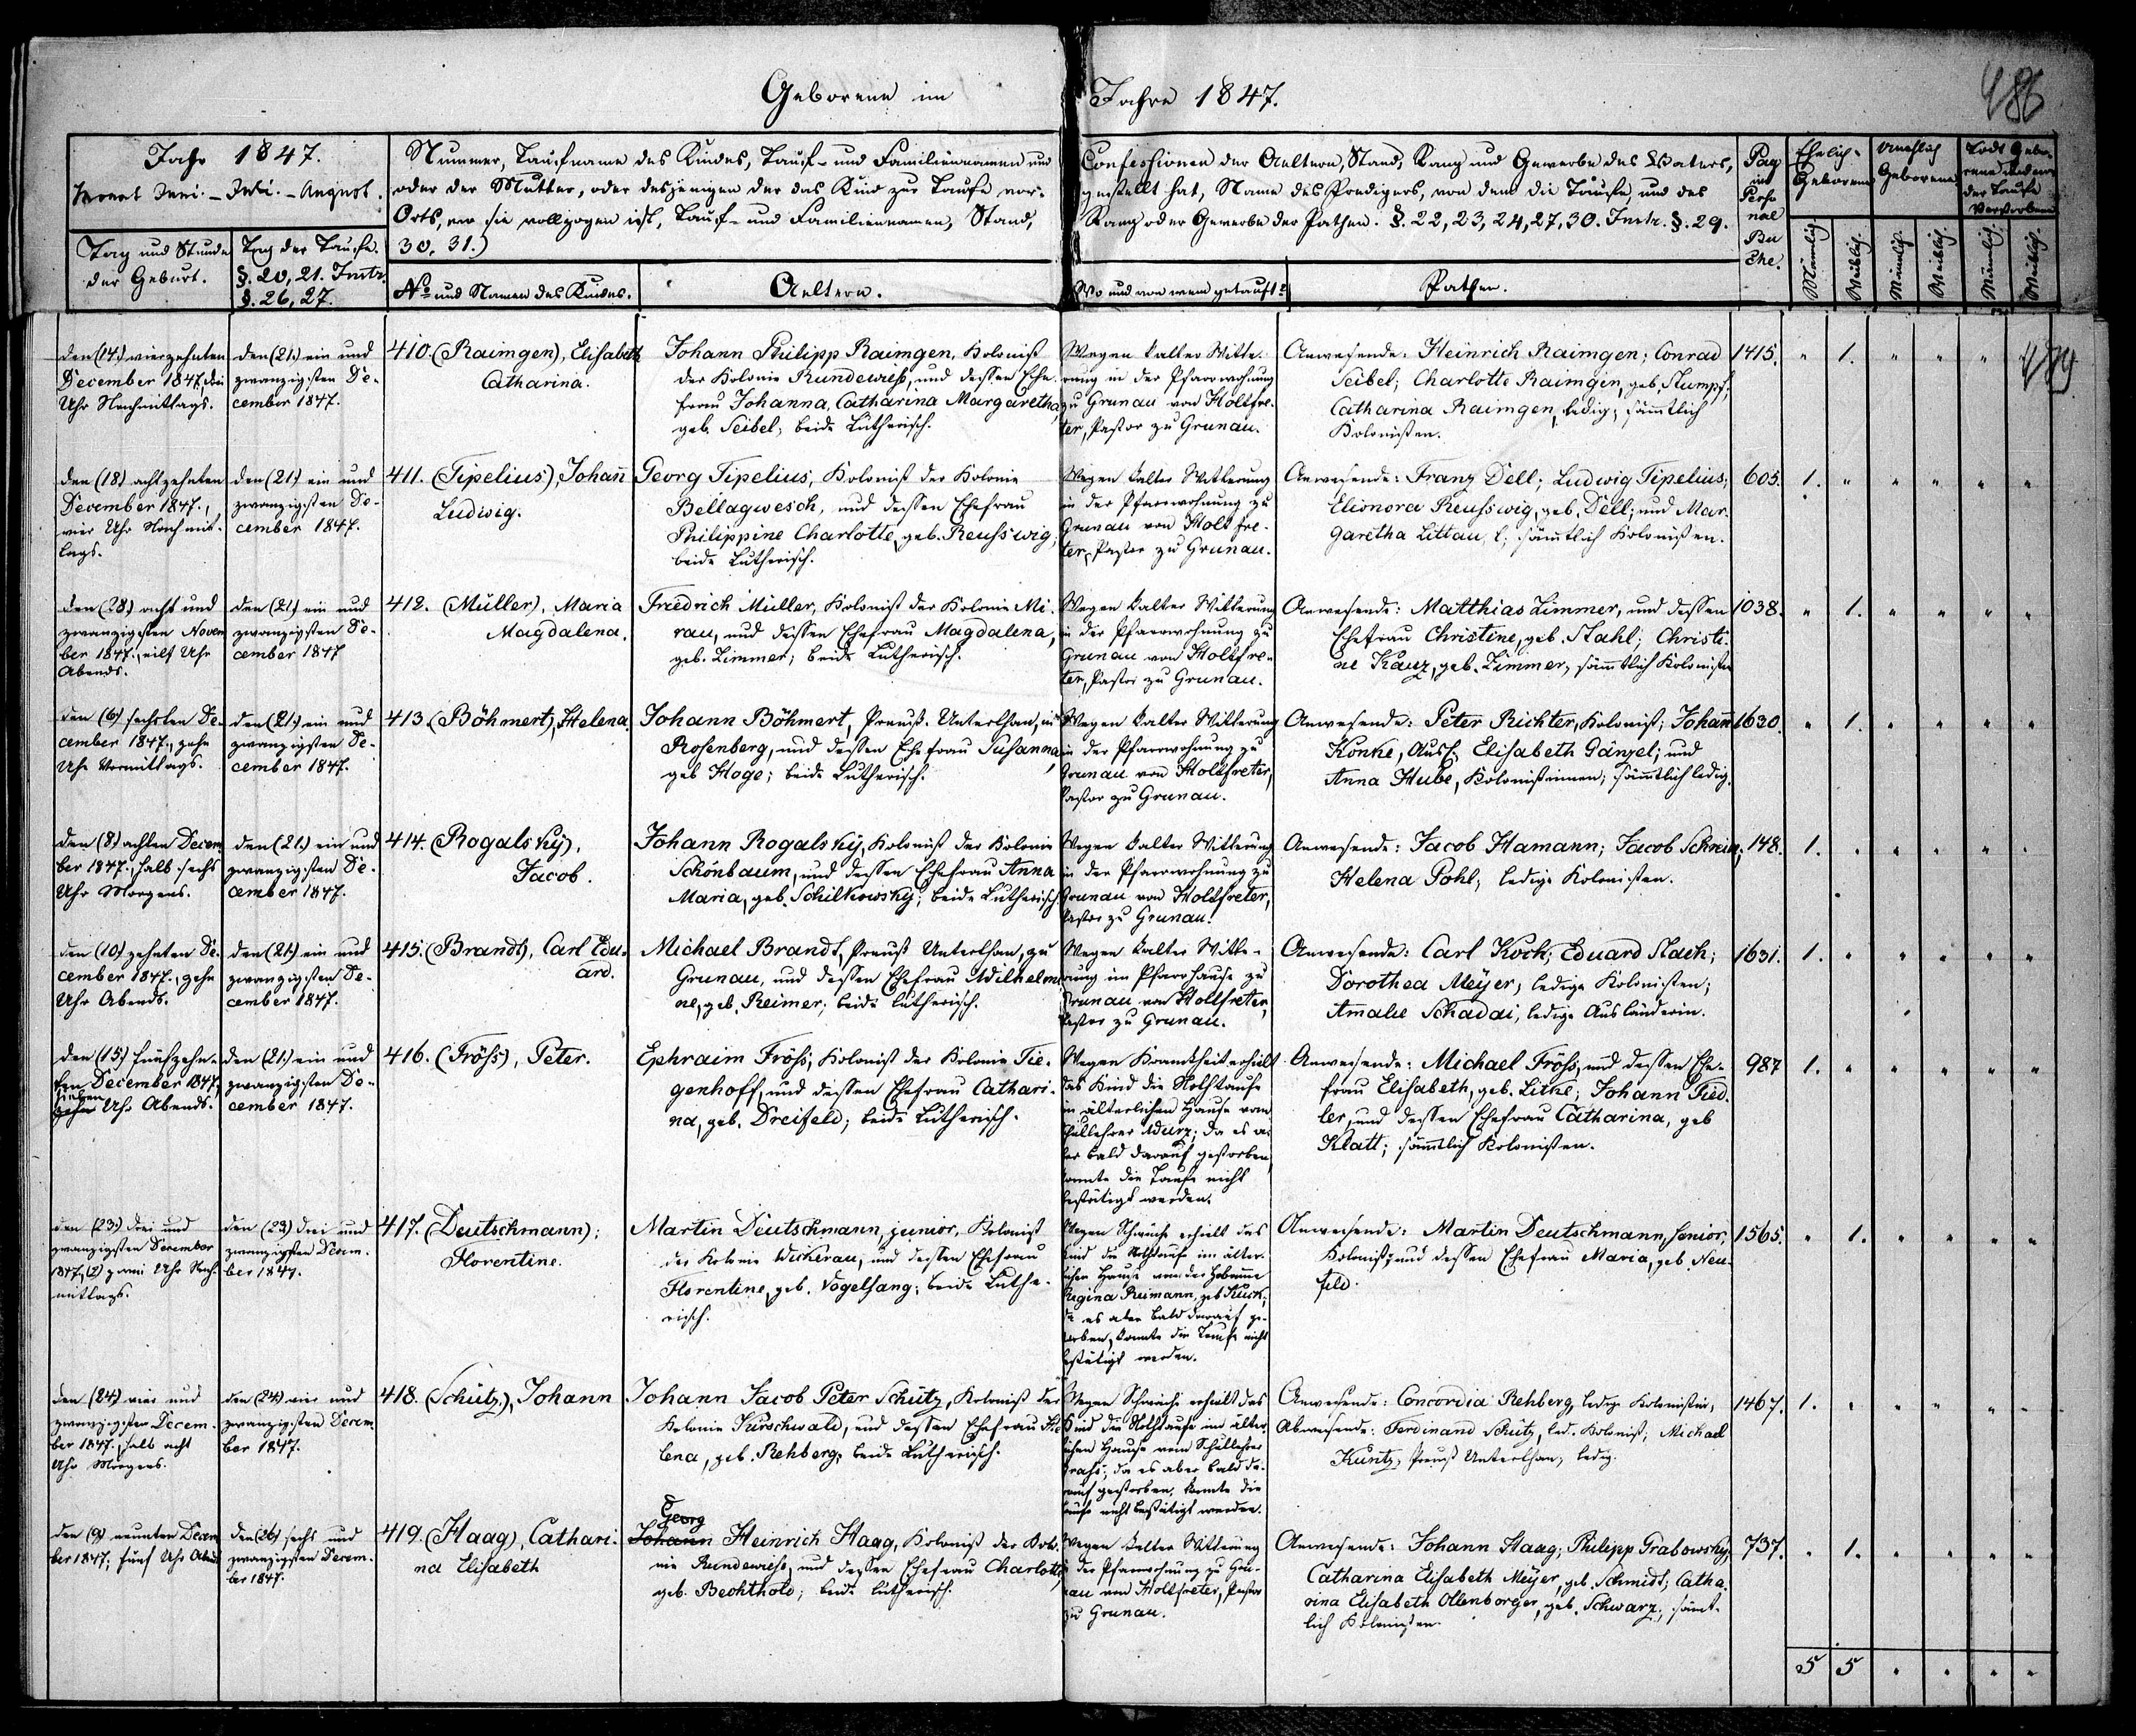 Geborene im
Jahre 1847.
486
Jahr 1847.
Monat Juni. - Juli. - August.
Tag und Stunde
der Geburt.
Tag der Taufe.
§. 20, 21. Instr.
§. 26, 27.
Nummer, Taufname des Kindes, Tauf- und Familiennamen und
oder der Mutter, oder desjenigen der das Kind zur Taufe vor-
Orts, wo sie vollzogen ist, Tauf- und Familiennamen, Stand,
30. 31.)
No und Namen des Kindes.
Aeltern.
Confessionen der Aeltern, Stand, Rang und Gewerbe des Vaters,
gestellt hat, Name des Predigers, von dem die Taufe, und des
Rang oder Gewerbe der Pathen. §. 22, 23, 24, 27, 30. Instr. §. 29.
Wo und von wem getauft?
Pathen.
Pag
im
Perso
nal
Bu
che.
Ehelich-
Geborene
Unehlich
Geborene
Todt Gebo-
rene und vor
der Taufe
Verstorbene
Männlich.
Weiblich.
Männlich.
Weiblich.
Männlich.
Weiblich.
den (14.) vierzehnten
December 1847. drei
Uhr Nachmittags.
den (21.) ein und
zwanzigsten De-
cember 1847.
410. (Raimgen), Elisabeth
Catharina.
Johann Philipp Raimgen, Kolonist
der Kolonie Rundewiess, und dessen Ehe-
frau Johanna, Catharina Margaretha,
geb. Seibel; beide Lutherisch.
Wegen kalter Witte-
rung in der Pfarrwohnung
zu Grunau von Holtfre-
ter, Pastor zu Grunau.
Anwesende: Heinrich Raimgen; Conrad
Seibel; Charlotte Raimgen, geb. Stumpf;
Catharina Raimgen, ledig; sämtlich
Kolonisten.
1415. " 1. " " "
den (18.) achtzehnten
December 1847.,
vier Uhr Nachmit-
tags.
den (21.) ein und
zwanzigsten De-
cember 1847.
411. (Tipelius), Johann
Ludwig.
Georg Tipelius, Kolonist der Kolonie
Bellagwesch, und dessen Ehefrau
Philippine Charlotte, geb. Reusswig;
beide Lutherisch.
Wegen kalter Witterung
in der Pfarrwohnung zu
Grunau von Holtfre-
ter, Pastor zu Grunau.
Anwesende: Franz Dell; Ludwig Tipelius;
Elionora Reusswig, geb. Dell; und Mar-
garetha Littau, l; sämtlich Kolonisten.
605. 1. " " " " "
den (28.) acht und
zwanzigsten Novem
ber 1847., eilf Uhr
Abends.
den (21.) ein und
zwanzigsten De-
cember 1847
412. (Müller), Maria
Magdalena.
Friedrich Müller, Kolonist der Kolonie Mi-
rau, und dessen Ehefrau Magdalena,
geb. Zimmer; beide Lutherisch.
Wegen kalter Witterung
in der Pfarrwohnung zu
Grunau von Holtfre-
ter, Pastor zu Grunau.
Anwesende: Matthias Zimmer, und dessen
Ehefrau Christine, geb. Stahl; Christi-
ne Kauz, geb. Zimmer; sämtlich Kolonisten
1038. " 1. " " " "
den (6.) sechsten De-
cember 1847., zehn
Uhr Vormittags.
den (21.) ein und
zwanzigsten De-
cember 1847.
413. (Böhmert), Helena.
Johann Böhmert, Preuß. Unterthan, in
Rosenberg, und dessen Ehefrau Susanna,
geb Hoge; beide Lutherisch.
Wegen kalter Witterung
in der Pfarrwohnung zu
Grunau von Holtfreter,
Pastor zu Grunau.
Anwesende: Peter Richter, Kolonist; Johann
Könke, Ausl. Elisabeth Gänzel; und
Anna Hube, Kolonistinnen; sämtlich ledig.
1630. " 1. " " " "
den (8.) achten Decem
ber 1847. halb sechs
Uhr Morgens.
den (21.) ein und
zwanzigsten De-
cember 1847.
414. (Rogalsky),
Jacob.
Johann Rogalsky, Kolonist der Kolonie
Schönbaum, und dessen Ehefrau Anna
Maria, geb. Schilkowsky; beide Lutherisch.
Wegen kalter Witterung
in der Pfarrwohnung zu
Grunau von Holtfreter,
Pastor zu Grunau.
Anwesende: Jacob Hamann; Jacob Schreim;
Helena Pohl; ledige Kolonisten.
148. 1. " " " " "
den (10.) zehnten De-
cember 1847., zehn
Uhr Abends.
den (21.) ein und
zwanzigsten De-
cember 1847.
415. (Brandt), Carl Edu-
ard.
Michael Brandt, Preuß Unterthan, zu
Grunau, und dessen Ehefrau Wilhelmi
ne, geb. Reimer; beide Lutherisch.
Wegen kalter Witte-
rung im Pfarrhause zu
Grunau von Holtfreter,
Pastor zu Grunau.
Anwesende: Carl Kock; Eduard Stach;
Dorothea Meyer; ledige Kolonisten;
Amalie Schadai, ledige Ausländerin.
1631. 1. " " " " "
den (15.) fünfzehn-
ten December 1847,
sieben
zehn Uhr Abends.
den (21.) ein und
zwanzigsten De-
cember 1847.
416. (Fröss), Peter.
Ephraim Fröss, Kolonist der Kolonie Tie-
genhoff, und dessen Ehefrau Cathari-
na, geb. Dreifeld; beide Lutherisch.
Wegen Krankheit erhielt
das Kind die Nothtaufe
im älterlichen Hause vom
Schullehrer Würz; da es a-
ber bald darauf gestorben,
konnte die Taufe nicht
bestätigt werden.
Anwesende: Michael Fröss, und dessen Ehe-
frau Elisabeth, geb. Litke; Johann Fied-
ler, und dessen Ehefrau Catharina, geb
Klatt; sämtlich Kolonisten.
987 1. " " " " "
den (23.) drei und
zwanzigsten December
1847, (2) zwei Uhr Nach-
mittags.
den (23.) drei und
zwanzigsten Decem-
ber 1847.
417. (Deutschmann);
Florentine.
Martin Deutschmann, junior, Kolonist
der Kolonie Wickerau, und dessen Ehefrau
Florentine, geb. Vogelsang; beide Luthe-
risch.
Wegen Schwäche erhielt das
Kind die Nothtaufe im älter-
lichen Hause von der Hebamme
Regina Reimann, geb Kuck;
da es aber bald darauf ge-
storben, konnte die Taufe nicht
bestätigt werden.
Anwesende: Martin Deutschmann, senior,
Kolonist; und dessen Ehefrau Maria, geb Neu-
feld.
1565. " 1. " " " "
den (24.) vier und
zwanzigsten Decem-
ber 1847., halb acht
Uhr Morgens.
den (24.) vier und
zwanzigsten Decem
ber 1847.
418. (Schütz), Johann
Johann Jacob Peter Schütz, Kolonist der
Kolonie Kurschwald, und dessen Ehefrau He
lena, geb. Rehberg; beide Lutherisch.
Wegen Schwäche erhielt das
Kind die Nothtaufe im älter-
lichen Hause vom Schullehrer
da es aber bald da-
rauf gestorben, konnte die
Taufe nicht bestätigt werden.
Anwesende: Concordia Rehberg, ledige Kolonistin;
Abwesende: Ferdinand Schütz, led. Kolonist; Michael
Kuntz, Preuß Unterthan, ledig.
1467. 1. " " " " "
den (9.) neunten Decem
ber 1847; fünf Uhr Abends
den (26.) sechs und
zwanzigsten Decem-
ber 1847.
419. (Haag), Cathari-
na Elisabeth
Georg
Johann Heinrich Haag, Kolonist der Kolo-
nie Rundewiess, und dessen Ehefrau Charlotte,
geb. Bechthold; beide Lutherisch.
Wegen kalter Witterung
in der Pfarrwohnung zu Gru-
nau von Holtfreter, Pastor
zu Grunau.
Anwesende: Johann Haag; Philipp Grabowsky;
Catharina Elisabeth Meyer, geb. Schmidt; Catha-
rina Elisabeth Ollenborger, geb. Schwarz; sämt-
lich Kolonisten.
737. " 1. " " " "
5 5 " " " "